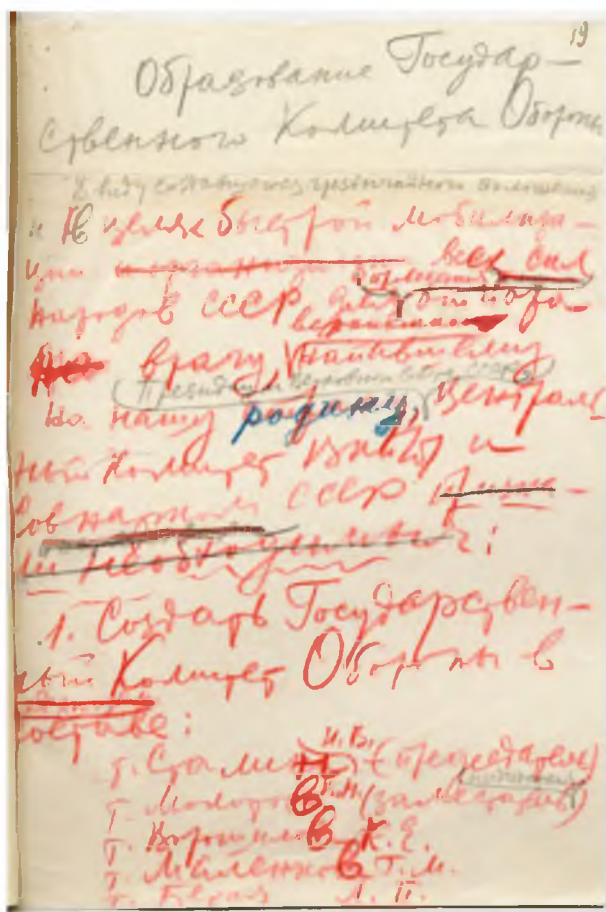 19
Образование Государ-
ственного Комитета Обороны
В виду создавшегося чрезвычайного положения
и в целях быстрой мобилиза-
ции всех сил
народов СССР для отпора
вероломно
врагу, напавшему
Президиум Верховного Совета СССР
на нашу родину, Централь-
ный Комитет ВКП(б) и
Совнарком СССР
необходимым:
1. Создать Государствен-
ный Комитет Обороны в
составе:
т. Сталин И.В. (председатель)
т. Молотов В.М. (заместитель)
т. Ворошилов К.Е.
т. Маленков Г.М.
т. Берия Л.П.